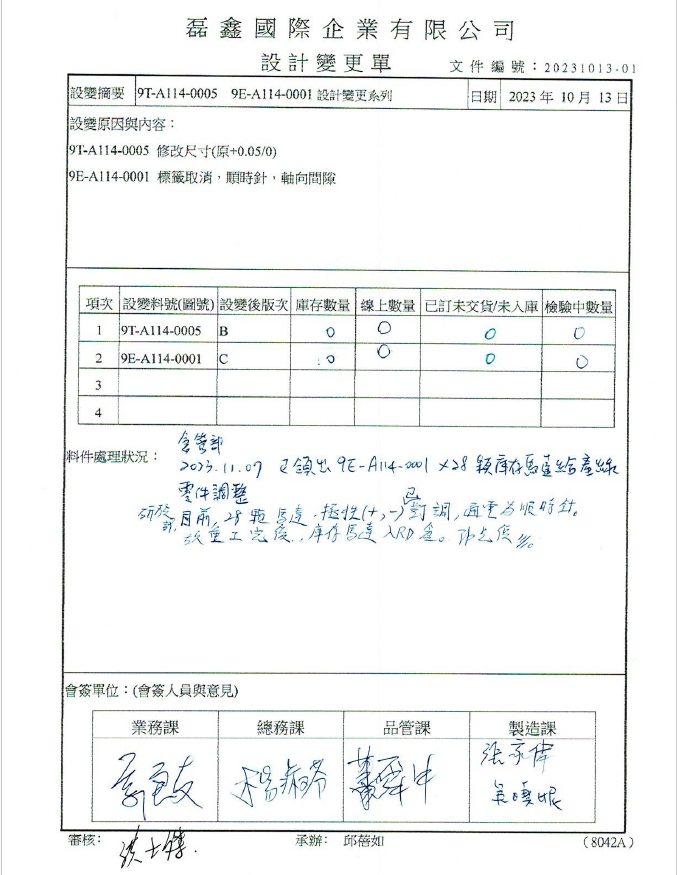 磊鑫國際企業有限公司
設計變更單
文件編號：20231013-01
設變摘要 9T-A114-0005 9E-A114-0001 設計變更系列 日期 2023 年 10 月 13 日
設變原因與內容：
9T-A114-0005 修改尺寸(原+0.05/0)
9E-A114-0001 標籤取消，順時針，軸向間隙
項次 設變料號(圖號) 設變後版次 庫存數量 線上數量 已訂未交貨/未入庫 檢驗中數量
1 9T-A114-0005 B 0 0 0 0
2 9E-A114-0001 C 0 0 0 0
3
4
倉管部
料件處理狀況：
2023.11.07 已領出 9E-A114-0001 x28 顆庫存馬達給產線
零件調整
研發課 目前, 28 顆馬達, 極性(+,-)已對調, 為順時針。
故重工完後, 庫存馬達入RD倉。
會簽單位：(會簽人員與意見)
業務課 總務課 品管課 製造課
審核：
承辦: 邱蓓如
(8042A)